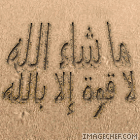 ما شاء الله
لا قوة إلا بالله
IMAGECHEF.COM